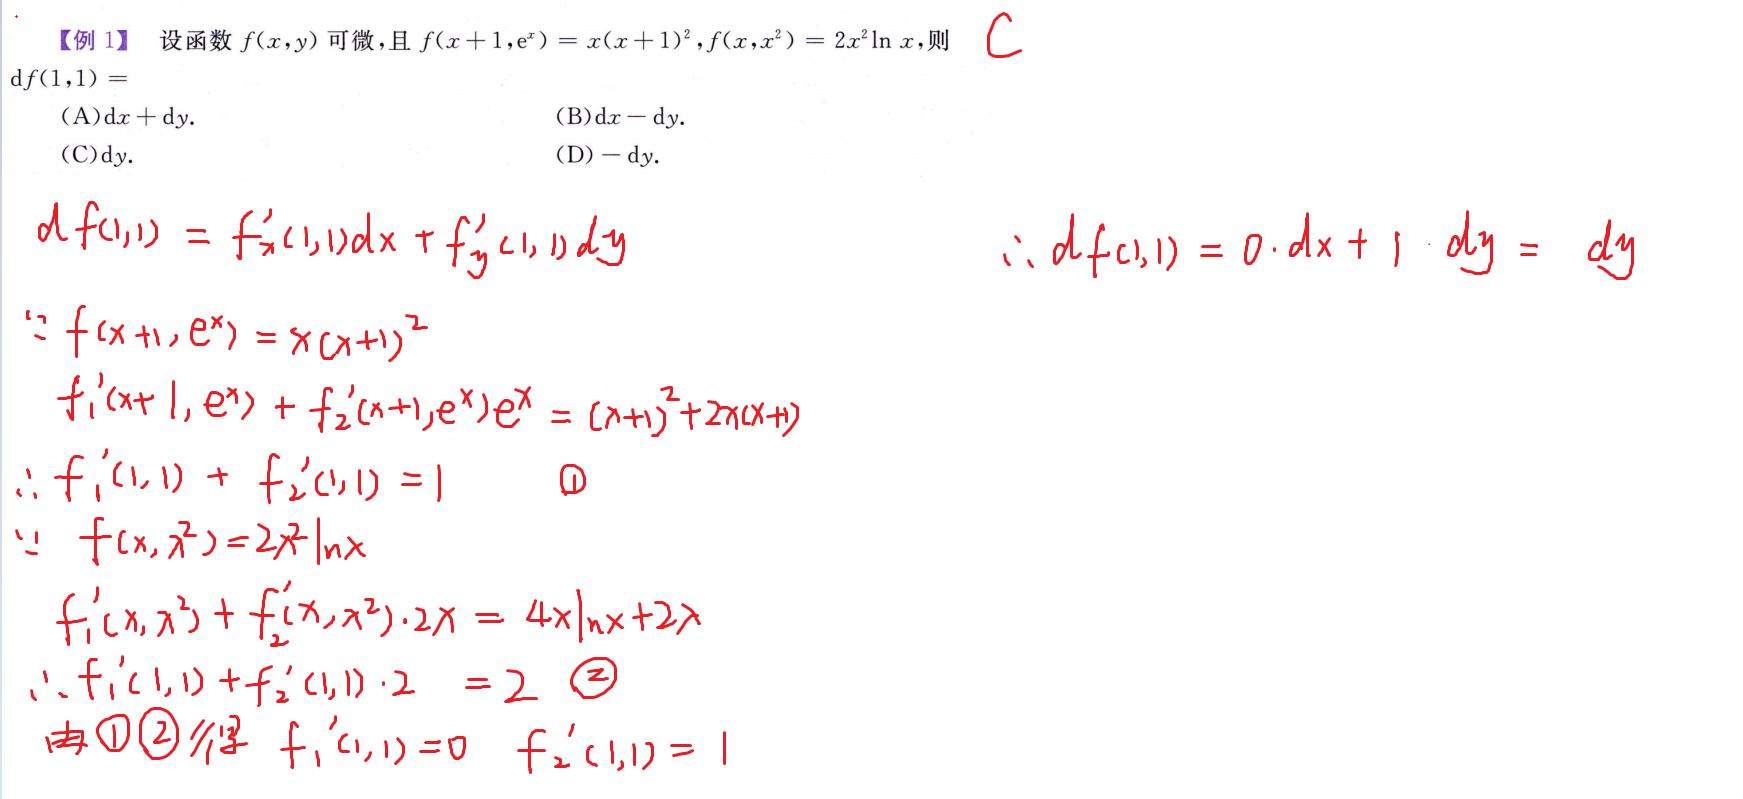 【例 1】 设函数 f(x,y) 可微,且 f(x+1,eˣ) = x(x+1)²,f(x,x²) = 2x²ln x,则 C
df(1,1) =
(A)dx+dy. (B)dx-dy.
(C)dy. (D)-dy.
df(1,1) = f'ₓ(1,1)dx + f'ᵧ(1,1)dy
∵ f(x+1, eˣ) = x(x+1)²
f₁'(x+1, eˣ) + f₂'(x+1, eˣ)eˣ = (x+1)²+2x(x+1)
∴ f₁'(1,1) + f₂'(1,1) = 1 ①
∵ f(x, x²) = 2x² lnx
f₁'(x, x²) + f₂'(x, x²)·2x = 4x lnx+2x
∴ f₁'(1,1) + f₂'(1,1)·2 = 2 ②
由①②得 f₁'(1,1) = 0 f₂'(1,1) = 1
∴ df(1,1) = 0·dx + 1·dy = dy